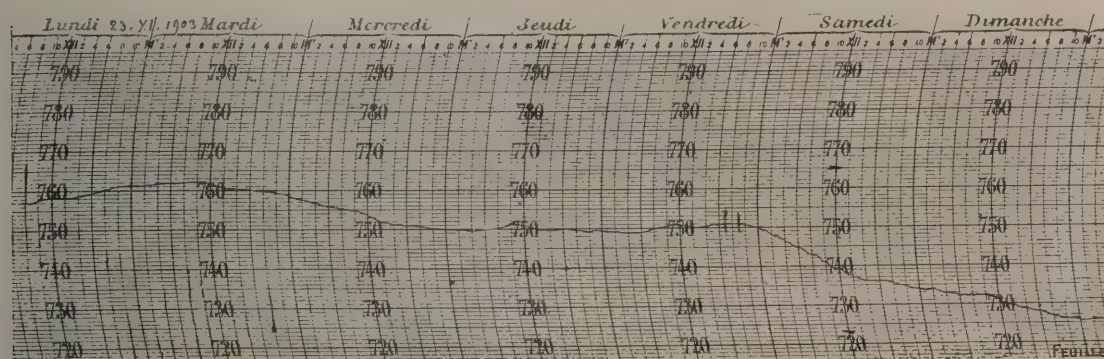 Lundi 23. XI. 1903 Mardi Mercredi Jeudi Vendredi Samedi Dimanche
4 6 8 10 XII 2 4 6 8 10 Mt 2 4 6 8 10 XII 2 4 6 8 10 Mt 2 4 6 8 10 XII 2 4 6 8 10 Mt 2 4 6 8 10 XII 2 4 6 8 10 Mt 2 4 6 8 10 XII 2 4 6 8 10 Mt 2 4 6 8 10 XII 2 4 6 8 10 Mt 2 4 6 8 10 XII 2 4 6 8 10 Mt 2
790 790 790 790 790 790 790
780 780 780 780 780 780 780
770 770 770 770 770 770 770
760 760 760 760 760 760 760
750 750 750 750 750 750
740 740 740 740 740 740 740
730 730 730 730 730 730 730
720 720 720 720 720 720 720
FEUILLE